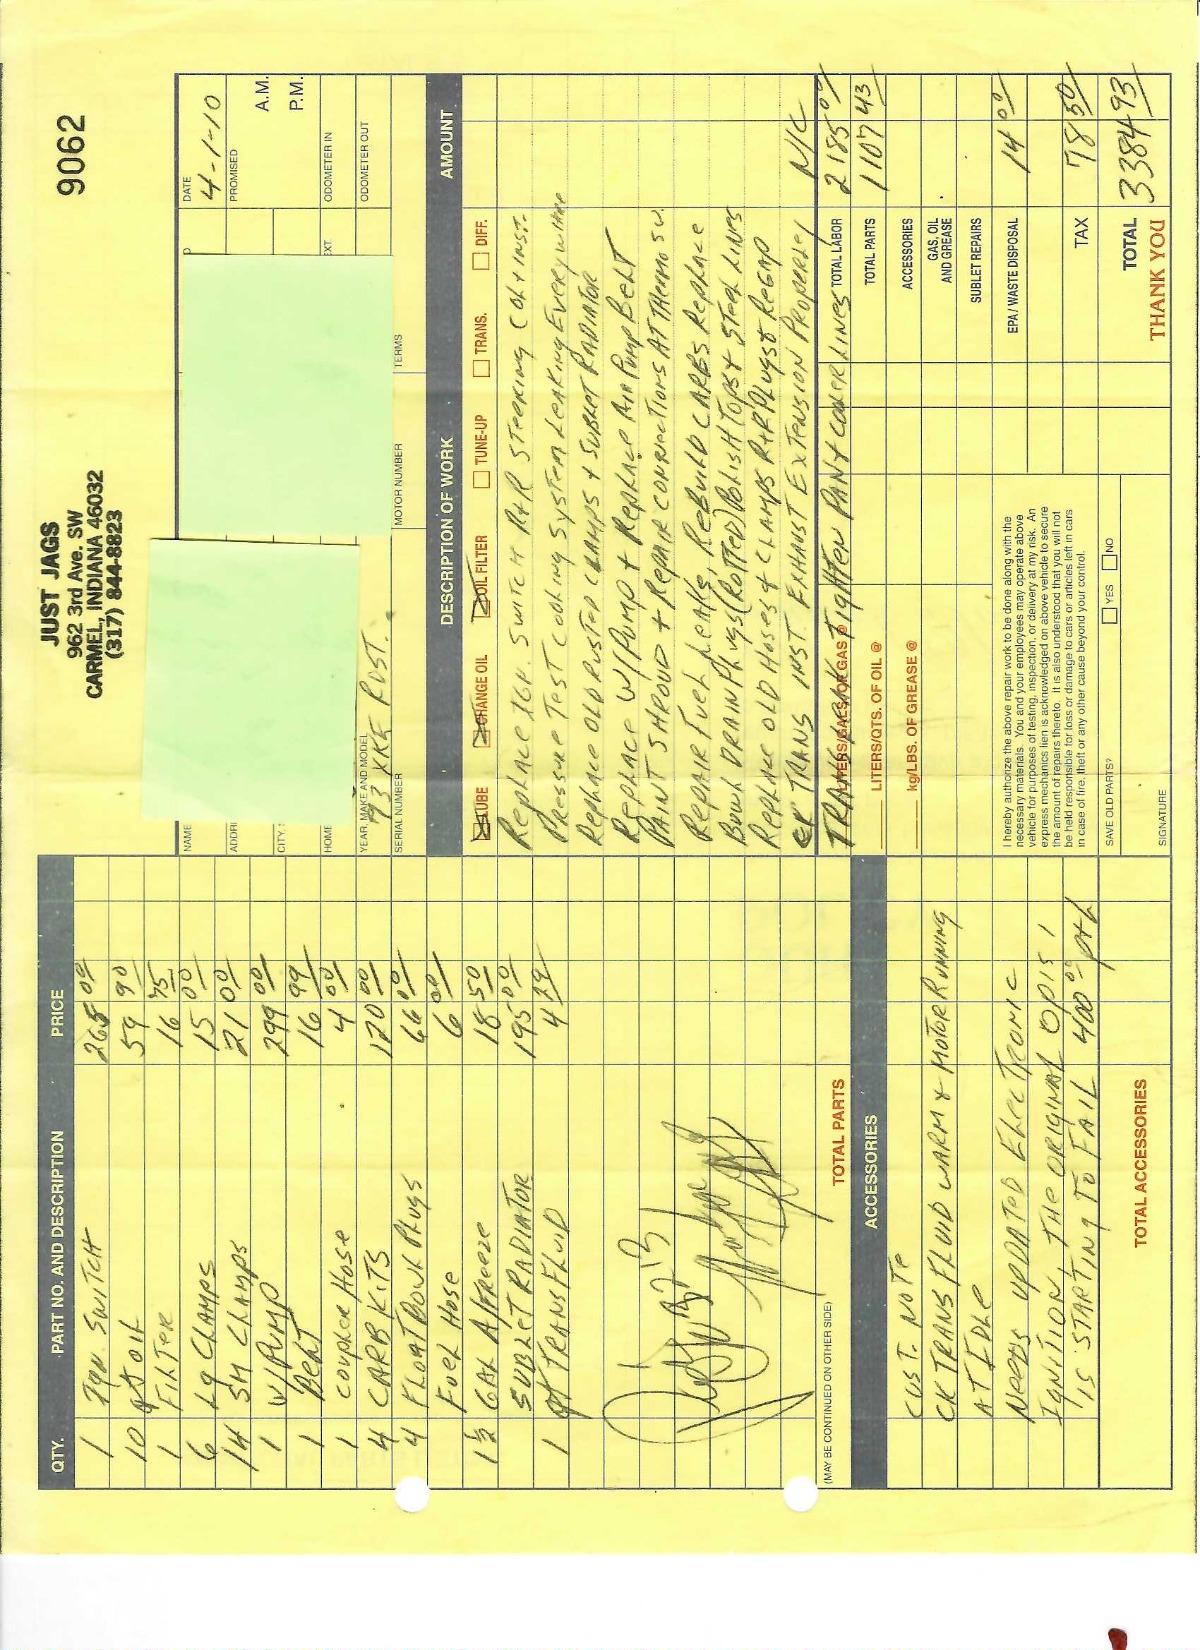 JUST JAGS
962 3rd Ave. SW
CARMEL, INDIANA 46032
(317) 844-8823
9062
QTY. PART NO. AND DESCRIPTION PRICE
1 IGN. SWITCH 265 00
10 qt OIL 59 90
1 FILTER 16 75
6 LG CLAMPS 15 00
14 SM CLAMPS 21 00
1 W/PUMP 299 00
1 BELT 16 99
1 COUPLER HOSE 4 00
4 CARB KITS 120 00
4 FLOAT BOWL PLUGS 66 00
FUEL HOSE 6 00
1 1/2 GAL A/FREEZE 18 50
SUBLET RADIATOR 195 00
1 qt TRANS FLUID 4 29
(MAY BE CONTINUED ON OTHER SIDE) TOTAL PARTS
ACCESSORIES
CUST. NOTE
CK TRANS FLUID WARM & MOTOR RUNNING
AT IDLE
NEEDS UPDATED ELECTRONIC
IGNITION, THE ORIGINAL OPIS 1
IS STARTING TO FAIL 400 00 P+L
TOTAL ACCESSORIES
NAME
DATE
4-1-10
ADDRE
PROMISED A.M.
P.M.
CITY, S
HOME
EXT
ODOMETER IN
YEAR, MAKE AND MODEL
73 XKE RDST.
ODOMETER OUT
SERIAL NUMBER MOTOR NUMBER TERMS
DESCRIPTION OF WORK AMOUNT
LUBE CHANGE OIL OIL FILTER TUNE-UP TRANS. DIFF.
REPLACE IGN. SWITCH R+R STEERING COL + INST.
PRESSURE TEST COOLING SYSTEM LEAKING EVERYWHERE
REPLACE OLD RUSTED CLAMPS + SUBLET RADIATOR
REPLACE W/PUMP + REPLACE AIR PUMP BELT
PAINT SHROUD + REPAIR CONNECTIONS AT THERMO SW.
REPAIR FUEL LEAKS, REBUILD CARBS REPLACE
BOWL DRAIN PLUGS (ROTTED) POLISH TOPS + STEEL LINES
REPLACE OLD HOSES + CLAMPS R+R PLUGS + REGAP
CK TRANS INST. EXHAUST EXTENSION PROPERLEY N/C
TRANS LEAK TIGHTEN PAN + COOLER LINES
LITERS/GALS. OF GAS @
TOTAL LABOR 2185 00
LITERS/QTS. OF OIL @
TOTAL PARTS 1107 43
kg/LBS. OF GREASE @
ACCESSORIES
GAS, OIL
AND GREASE
SUBLET REPAIRS
I hereby authorize the above repair work to be done along with the
necessary materials. You and your employees may operate above
vehicle for purposes of testing, inspection, or delivery at my risk. An
express mechanics lien is acknowledged on above vehicle to secure
the amount of repairs thereto. It is also understood that you will not
be held responsible for loss or damage to cars or articles left in cars
in case of fire, theft or any other cause beyond your control.
EPA / WASTE DISPOSAL 14 00
TAX 78 50
SAVE OLD PARTS? YES NO
TOTAL 3384 93
SIGNATURE
THANK YOU